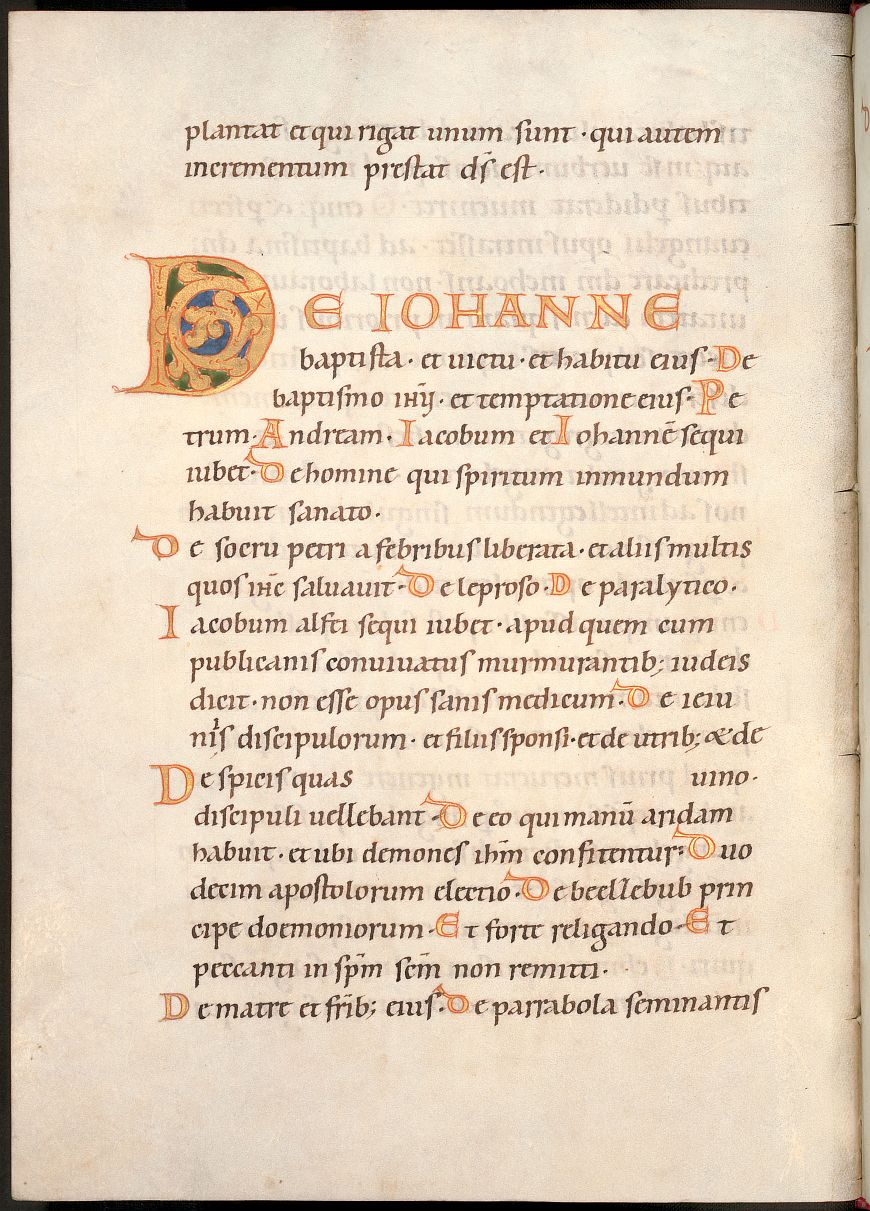 plantat et qui rigat unum sunt · qui autem
incrementum prestat d̄s est ·
DE IOHANNE
baptista · et uictu · et habitu eius · De
baptismo ihū · et temptatione eius · Pe
trum · Andream · Iacobum et Iohannē sequi
iubet · De homine qui spiritum inmundum
habuit sanato ·
De socru petri a febribus liberata · et aliis multis
quos ihc saluauit · De leproso · De paralytico ·
Iacobum alfei sequi iubet · apud quem cum
publicanis conuiuatus murmurantib; iudeis
dicit · non esse opus sanis medicum · De ieiu
niis discipulorum · et filiis sponsi · et de utrib; & de
De spicis quas uino ·
discipuli uellebant · De eo qui manū aridam
habuit · et ubi demones ihm̄ confitentur · Duo
decim apostolorum electio · De beelzebub prin
cipe doemoniorum · Et forte religando · Et
peccanti in sp̄m sc̄m non remitti ·
De matre et fr̄ib; eius · De parrabola seminantis